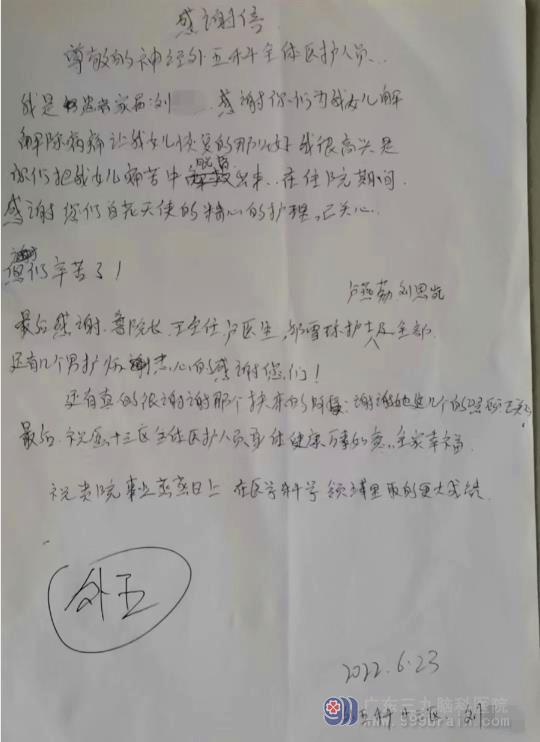 感谢信
尊敬的神经外五科全体医护人员..
我是患者家属刘 感谢你们为我女儿解
解除病痛让我女儿恢复的那么好我很高兴是
你们把我女儿痛苦中出来..在住院期间.
感谢您们白衣天使的精心的护理,己关心.
您们辛苦了!
卢燕 刘思
最后感谢.鲁院长 王主任 卢医生, 邹雪 护士及全部
还有几个男护 心的感谢您们!
还有真的很谢谢那个扶来的阿 谢谢她这几个的照顾
最后.祝 十三区全体医护人员身体健康万事如意..全家幸福
祝贵院事业蒸蒸日上 在医学科学领域里取的更大成绩.
外五
2022.6.23
外五科 十三区 刘
广东三九脑科医院
www.999brain.com